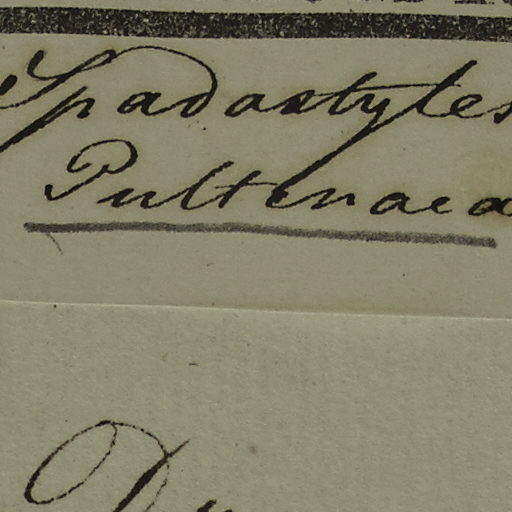 Spadostyles
Pultenaea